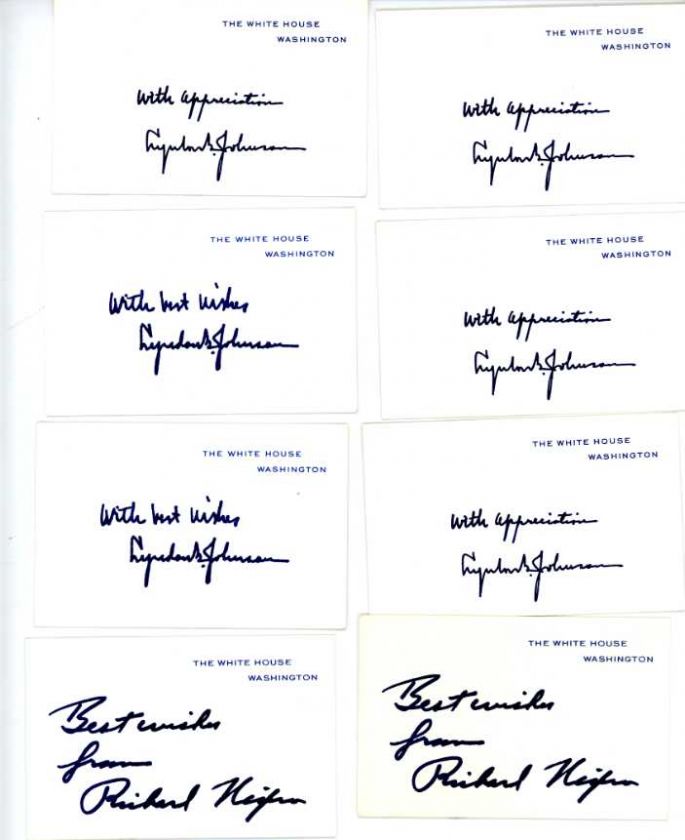 THE WHITE HOUSE
WASHINGTON
With Appreciation
Lyndon B. Johnson
THE WHITE HOUSE
WASHINGTON
With Appreciation
Lyndon B. Johnson
THE WHITE HOUSE
WASHINGTON
With best wishes
Lyndon B. Johnson
THE WHITE HOUSE
WASHINGTON
With Appreciation
Lyndon B. Johnson
THE WHITE HOUSE
WASHINGTON
With best wishes
Lyndon B. Johnson
THE WHITE HOUSE
WASHINGTON
With Appreciation
Lyndon B. Johnson
THE WHITE HOUSE
WASHINGTON
Best wishes
from
Richard Nixon
THE WHITE HOUSE
WASHINGTON
Best wishes
from
Richard Nixon